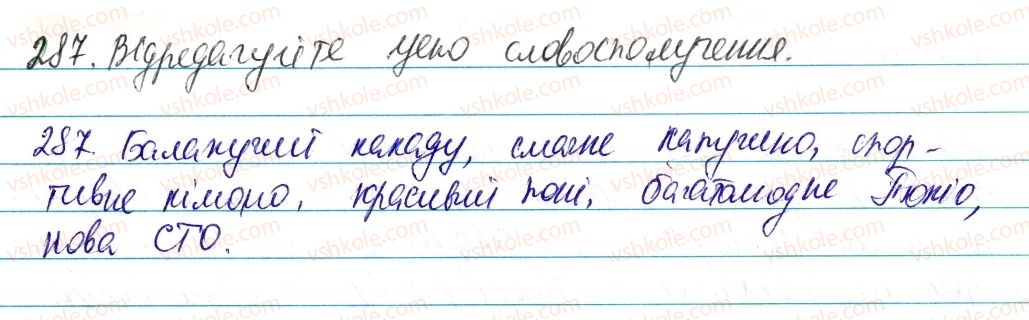 287. Відредагуйте усно словосполучення.
287. Балакучий какаду, смачне капучино, спор-
тивне кімоно, красивий поні, багатолюдне Токіо,
нова СТО.